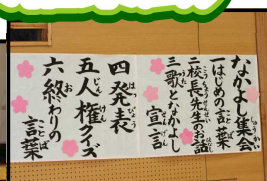 なかよし集会
一はじめの言葉
二校長先生のお話
三歌となかよし
宣言
四発表
五人権クイズ
六終わりの
言葉